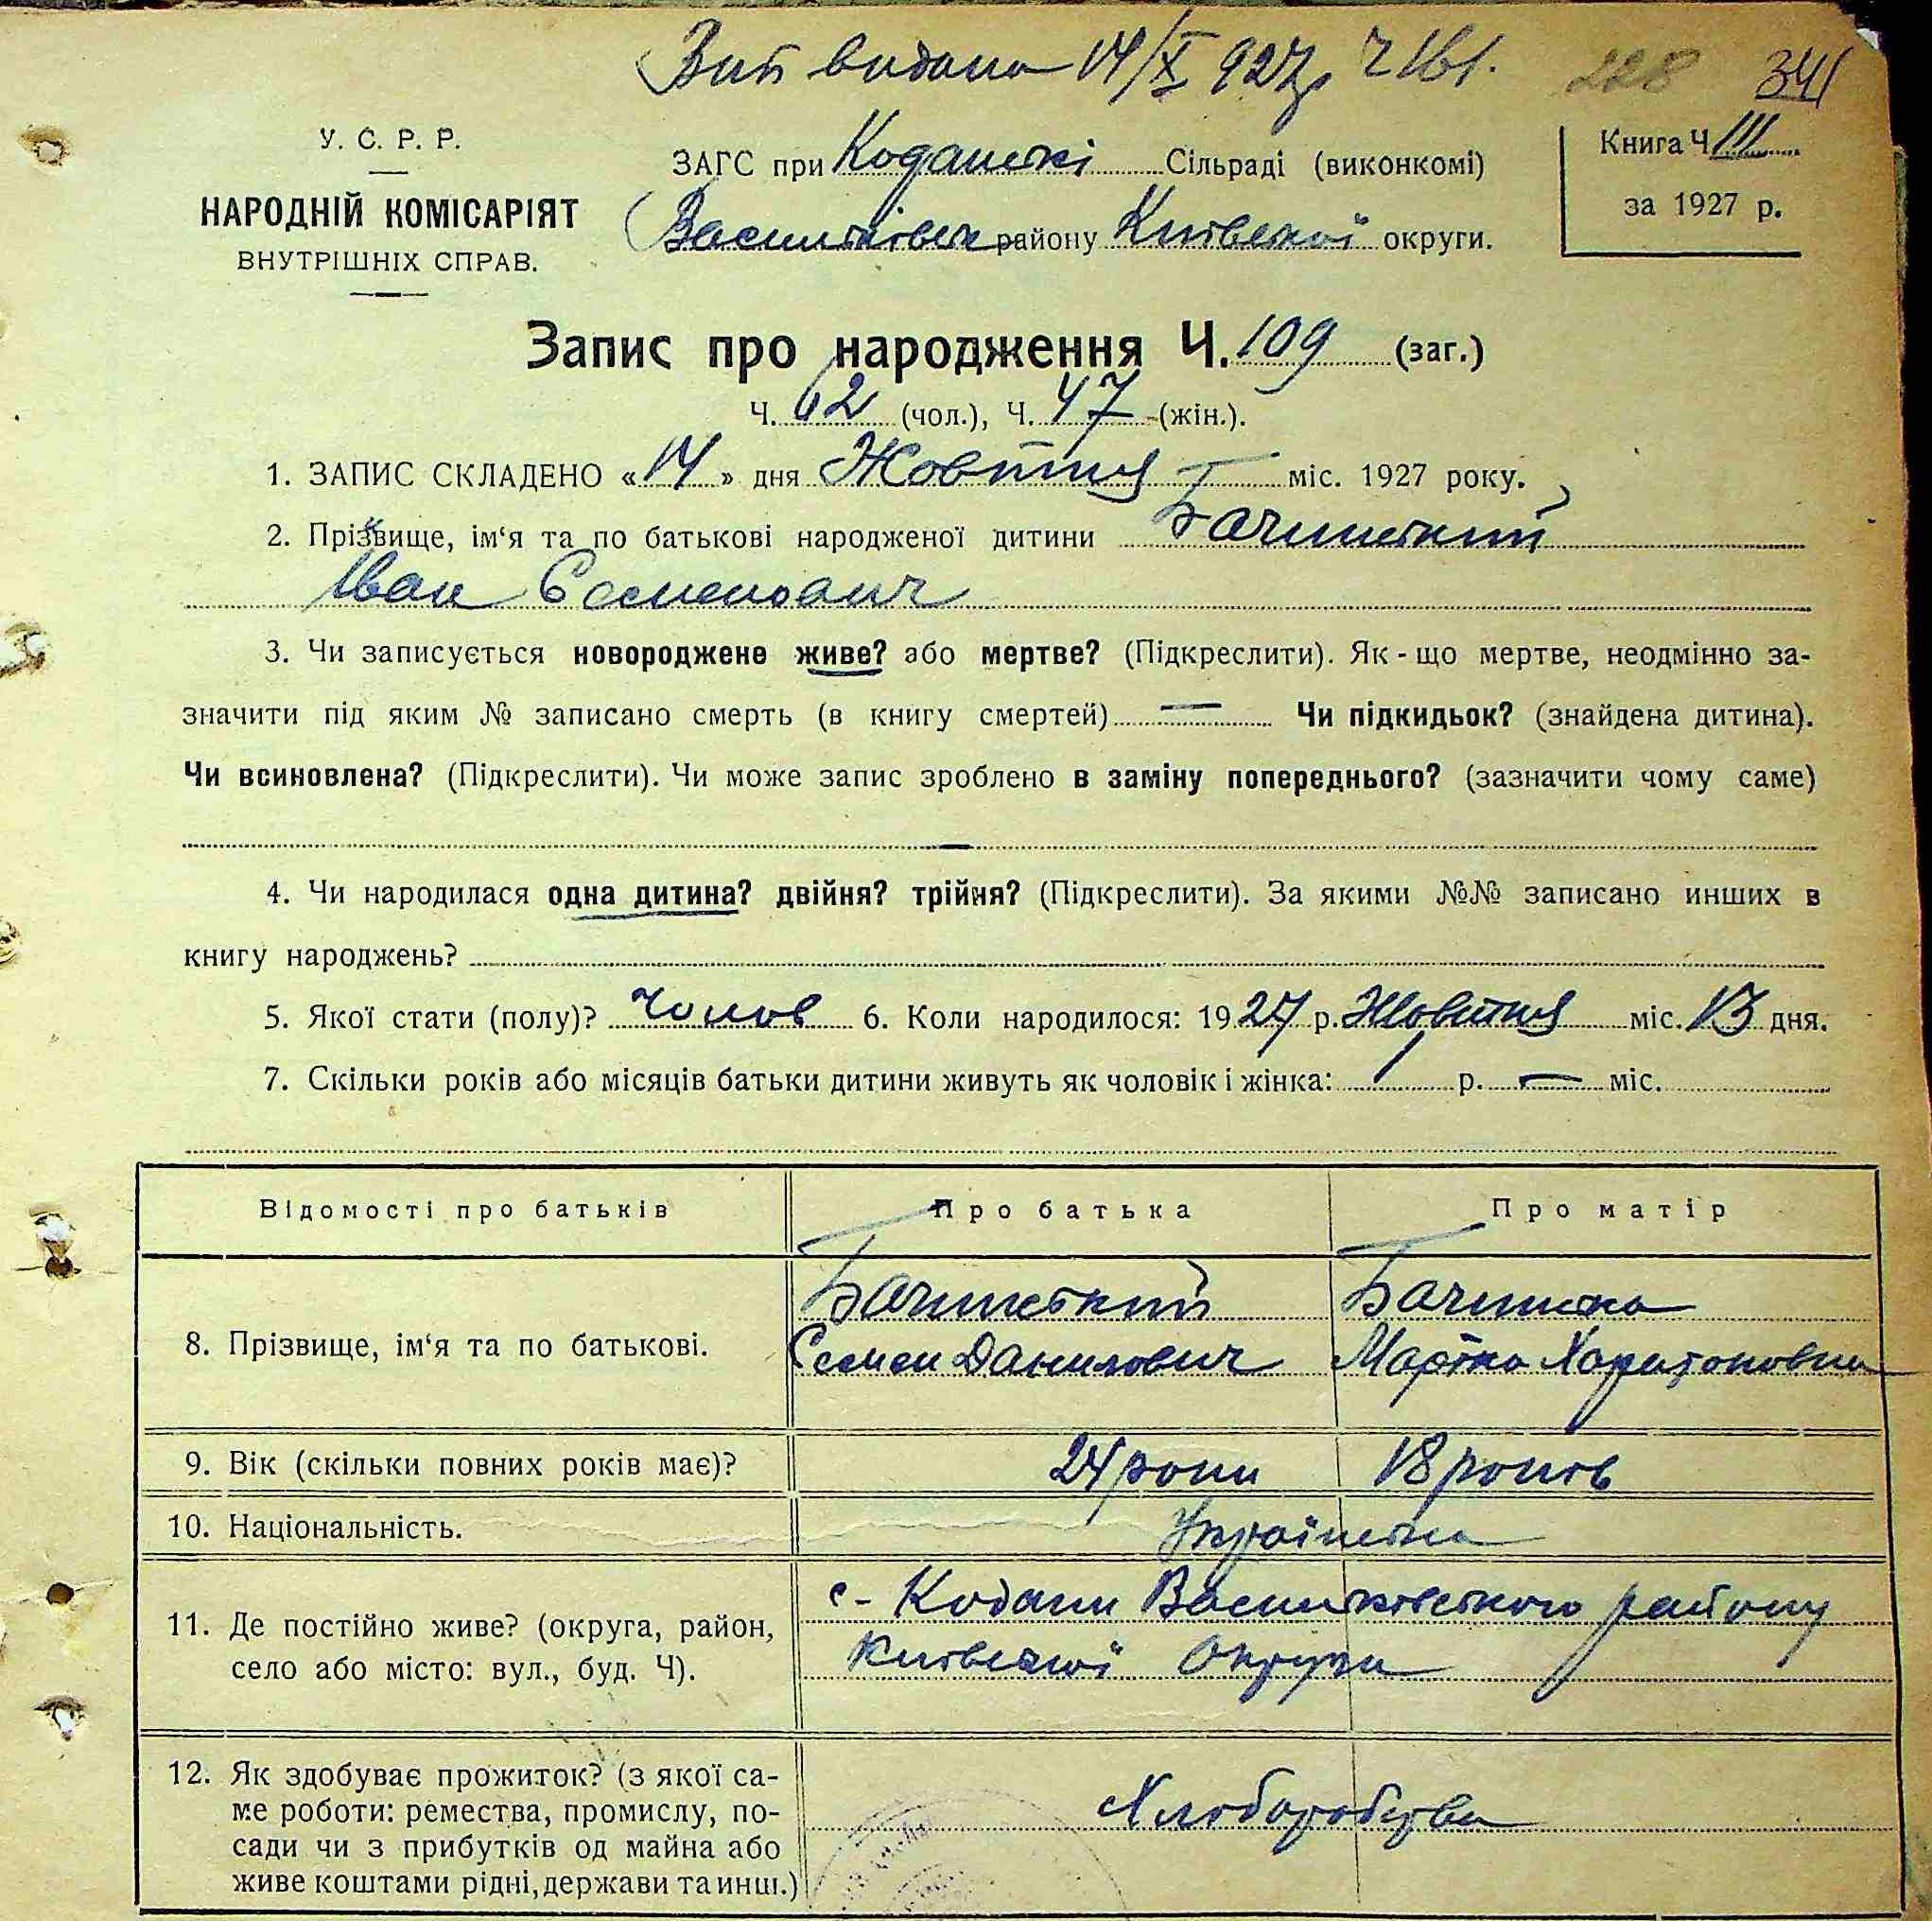 Вип видана 14/X 927р Ч 161. 228 341
У. С. Р. Р.
НАРОДНІЙ КОМІСАРІЯТ
ВНУТРІШНІХ СПРАВ.
ЗАГС при Кодацькі Сільраді (виконкомі)
Васильківськ району Київської округи.
Книга Ч III
за 1927 р.
Запис про народження Ч. 109 (заг.)
Ч. 62 (чол.), Ч. 47 (жін.).
1. ЗАПИС СКЛАДЕНО «14» дня Жовтня міс. 1927 року.
2. Прізвище, ім‘я та по батькові народженої дитини Бачинський
Іван Семенович
3. Чи записується новороджене живе? або мертве? (Підкреслити). Як-що мертве, неодмінно за-
значити під яким № записано смерть (в книгу смертей) — Чи підкидьок? (знайдена дитина).
Чи всиновлена? (Підкреслити). Чи може запис зроблено в заміну попереднього? (зазначити чому саме)
—
4. Чи народилася одна дитина? двійня? трійня? (Підкреслити). За якими №№ записано инших в
книгу народжень?
5. Якої стати (полу)? Чолов 6. Коли народилося: 1927 р. Жовтня міс. 13 дня.
7. Скільки років або місяців батьки дитини живуть як чоловік і жінка: 1 р. — міс.
Відомості про батьків Про батька Про матір
8. Прізвище, ім‘я та по батькові.
Бачинський Бачинська
Семен Данилович Мартка Харитоновна
9. Вік (скільки повних років має)? 24 роки 18 років
10. Національність. Українська
11. Де постійно живе? (округа, район,
село або місто: вул., буд. Ч).
с- Кодаки Васильківського району
Київської Округи
12. Як здобуває прожиток? (з якої са-
ме роботи: ремества, промислу, по-
сади чи з прибутків од майна або
живе коштами рідні, держави та инш.)
Хліборобства